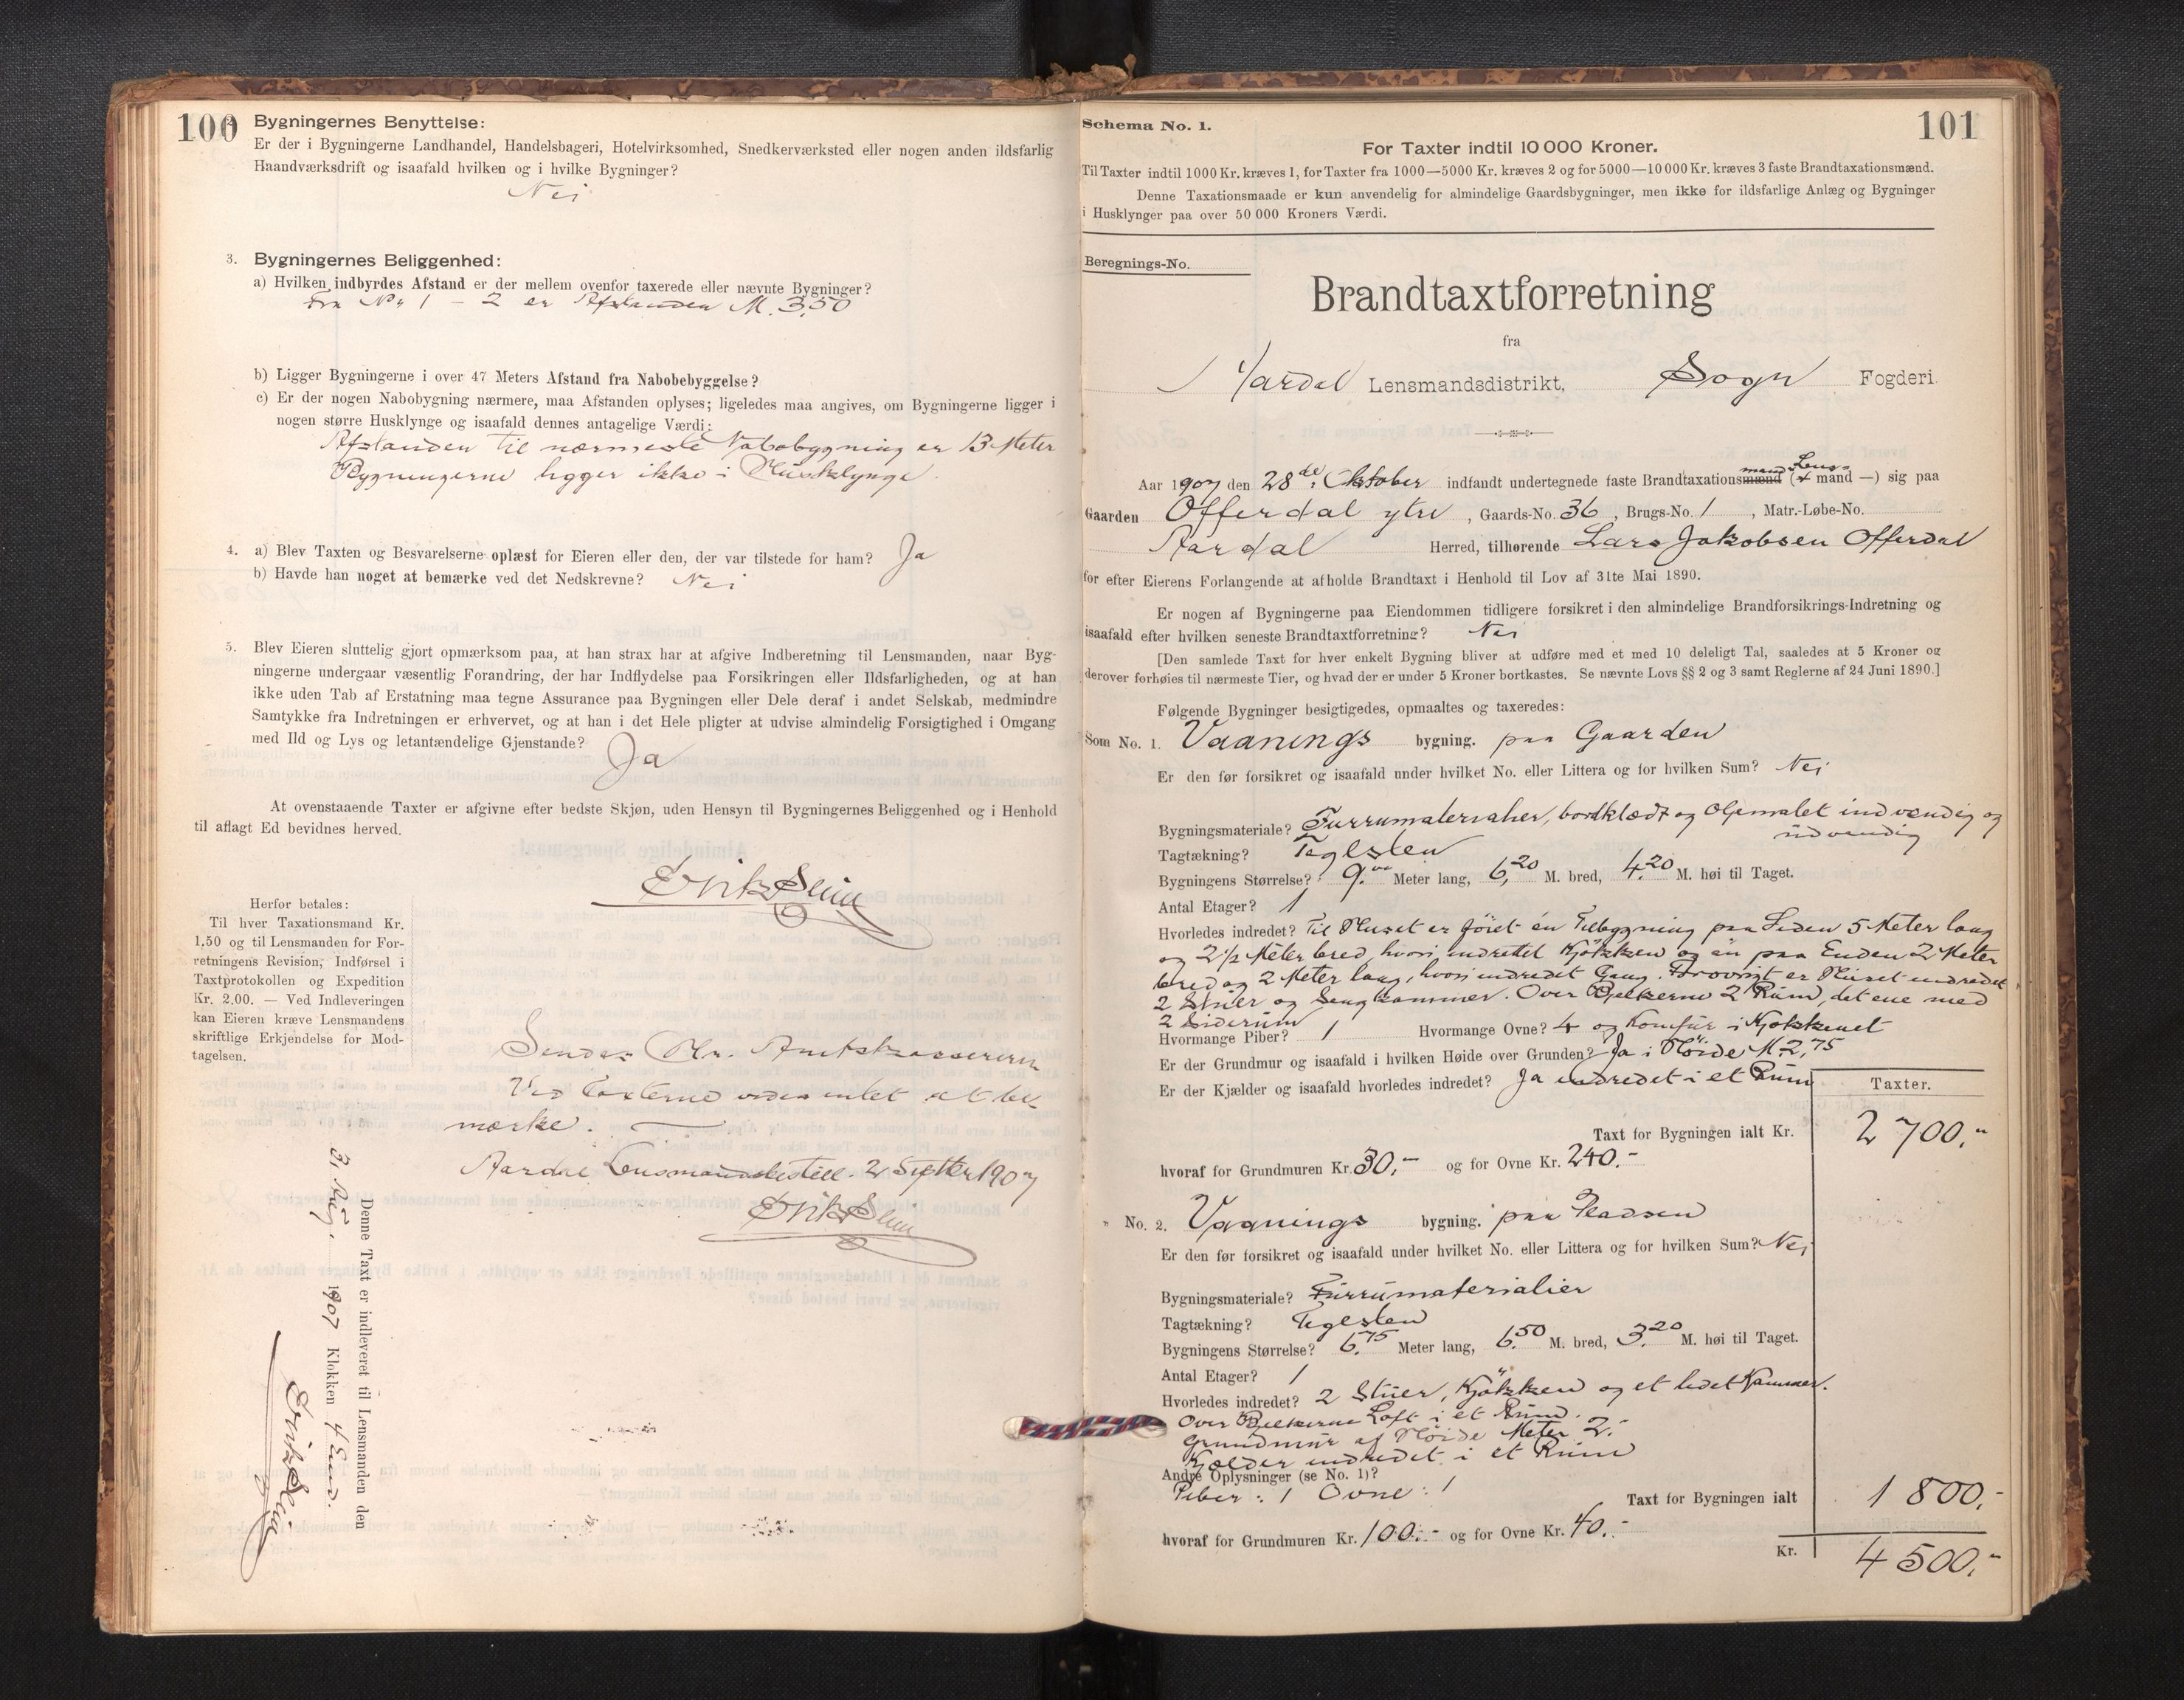 100
2. Bygningernes Benyttelse:
Er der i Bygningerne Landhandel, Handelsbageri, Hotelvirksomhed, Snedkerværksted eller nogen anden ildsfarlig
Haandværksdrift og isaafald hvilken og i hvilke Bygninger?
Nei
3. Bygningernes Beliggenhed:
a) Hvilken indbyrdes Afstand er der mellem ovenfor taxerede eller nævnte Bygninger?
Fra No 1 - 2 er Afstanden M. 3,50
b) Ligger Bygningerne i over 47 Meters Afstand fra Nabobebyggelse?
c) Er der nogen Nabobygning nærmere, maa Afstanden oplyses; ligeledes maa angives, om Bygningerne ligger i
nogen større Husklynge og isaafald dennes antagelige Værdi:
Afstanden til nærmeste Nabobygning er 13 Meter
Bygningerne ligger ikke i Husklynge
4. a) Blev Taxten og Besvarelserne oplæst for Eieren eller den, der var tilstede for ham? Ja
b) Havde han noget at bemærke ved det Nedskrevne? Nei
5. Blev Eieren sluttelig gjort opmærksom paa, at han strax har at afgive Indberetning til Lensmanden, naar Byg-
ningerne undergaar væsentlig Forandring, der har Indflydelse paa Forsikringen eller Ildsfarligheden, og at han
ikke uden Tab af Erstatning maa tegne Assurance paa Bygningen eller Dele deraf i andet Selskab, medmindre
Samtykke fra Indretningen er erhvervet, og at han i det Hele pligter at udvise almindelig Forsigtighed i Omgang
med Ild og Lys og letantændelige Gjenstande? Ja
At ovenstaaende Taxter er afgivne efter bedste Skjøn, uden Hensyn til Bygningernes Beliggenhed og i Henhold
til aflagt Ed bevidnes herved.
Erik Slin
Herfor betales:
Til hver Taxationsmand Kr.
1.50 og til Lensmanden for For-
retningens Revision, Indførsel i
Taxtprotokollen og Expedition
Kr. 2.00. — Ved Indleveringen
kan Eieren kræve Lensmandens
skriftlige Erkjendelse for Mod-
tagelsen.
Sendes Hr. Amtskassereren
Ved Taxterne vides intet at be-
mærke.
Aardal Lensmandsbestill. 2 Septbr 1907
Erik Slin
Denne Taxt er indleveret til Lensmanden den
3. Aug. 1907 Klokken 4 Emd.
Erik Slin
101
Schema No. 1.
For Taxter indtil 10 000 Kroner.
Til Taxter indtil 1000 Kr. kræves 1, for Taxter fra 1000—5000 Kr. kræves 2 og for 5000—10 000 Kr. kræves 3 faste Brandtaxationsmænd.
Denne Taxationsmaade er kun anvendelig for almindelige Gaardsbygninger, men ikke for ildsfarlige Anlæg og Bygninger
i Husklynger paa over 50 000 Kroners Værdi.
Beregnings-No.
Brandtaxtforretning
fra
Aardal Lensmandsdistrikt, Sogn Fogderi.
Aar 1907 den 28de Oktober indfandt undertegnede faste Brandtaxationsmænd mand (Lens- mand —) sig paa
Gaarden Offerdal ytre, Gaards-No. 36, Brugs-No. 1, Matr.-Løbe-No.
Aardal Herred, tilhørende Lars Jakobsen Offerdal
for efter Eierens Forlangende at afholde Brandtaxt i Henhold til Lov af 31te Mai 1890.
Er nogen af Bygningerne paa Eiendommen tidligere forsikret i den almindelige Brandforsikrings-Indretning og
isaafald efter hvilken seneste Brandtaxtforretning? Nei
[Den samlede Taxt for hver enkelt Bygning bliver at udføre med et med 10 deleligt Tal, saaledes at 5 Kroner og
derover forhøies til nærmeste Tier, og hvad der er under 5 Kroner bortkastes. Se nævnte Lovs §§ 2 og 3 samt Reglerne af 24 Juni 1890.]
Følgende Bygninger besigtigedes, opmaaltes og taxeredes:
Som No. 1. Vaanings bygning. paa Gaarden
Er den før forsikret og isaafald under hvilket No. eller Littera og for hvilken Sum? Nei
Bygningsmateriale? Furrumaterialier, bordklædt og Oljemalet indvændig og
udvændig
Tagtækning? Teglsten
Bygningens Størrelse? 9.00 Meter lang, 6,20 M. bred, 4.20 M. høi til Taget.
Antal Etager? 1
Hvorledes indredet? Til Huset er föiet én Tilbygning paa Siden 5 Meter lang
og 2 1/2 Meter bred, hvori indrettet Kjökken og én paa Enden 2 Meter
bred og 2 Meter lang, hvori indredet Gang. Forövrigt er Huset indredet
2 Stuer og Sengkammer. Over Bjelkerne 2 Rum, det ene med
2 Siderum
Hvormange Piber? 1 Hvormange Ovne? 4 og Komfur i Kjøkkenet
Er der Grundmur og isaafald i hvilken Høide over Grunden? Ja i Höide M. 2,75
Er der Kjælder og isaafald hvorledes indredet? Ja indredet i et Rum
Taxter.
Taxt for Bygningen ialt Kr. 2 700.-
hvoraf for Grundmuren Kr. 30.- og for Ovne Kr. 240.-
" No. 2. Vaanings bygning. paa Pladsen
Er den før forsikret og isaafald under hvilket No. eller Littera og for hvilken Sum? Nei
Bygningsmateriale? Furrumaterialier
Tagtækning? Teglsten
Bygningens Størrelse? 6.75 Meter lang, 6.50 M. bred, 3.20 M. høi til Taget.
Antal Etager? 1
Hvorledes indredet? 2 Stuer, Kjökken og et lidet Kammer.
Over Bjelkerne Loft i et Rum.
Grundmur af Höide Meter 2.-
Kjelder indredet i et Rum
Andre Oplysninger (se No. 1)?
Piber: 1 Ovne: 1
Taxt for Bygningen ialt 1 800.-
hvoraf for Grundmuren Kr. 100.- og for Ovne Kr. 40.-
Kr. 4 500.-